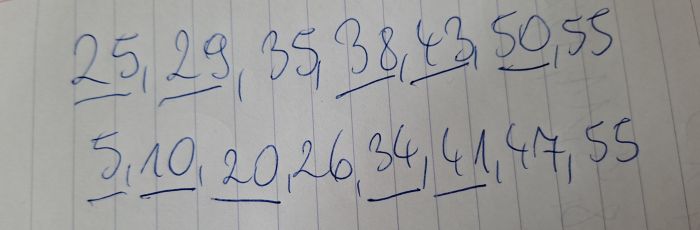 25, 29, 35, 38, 43, 50, 55
5, 10, 20, 26, 34, 41, 47, 55